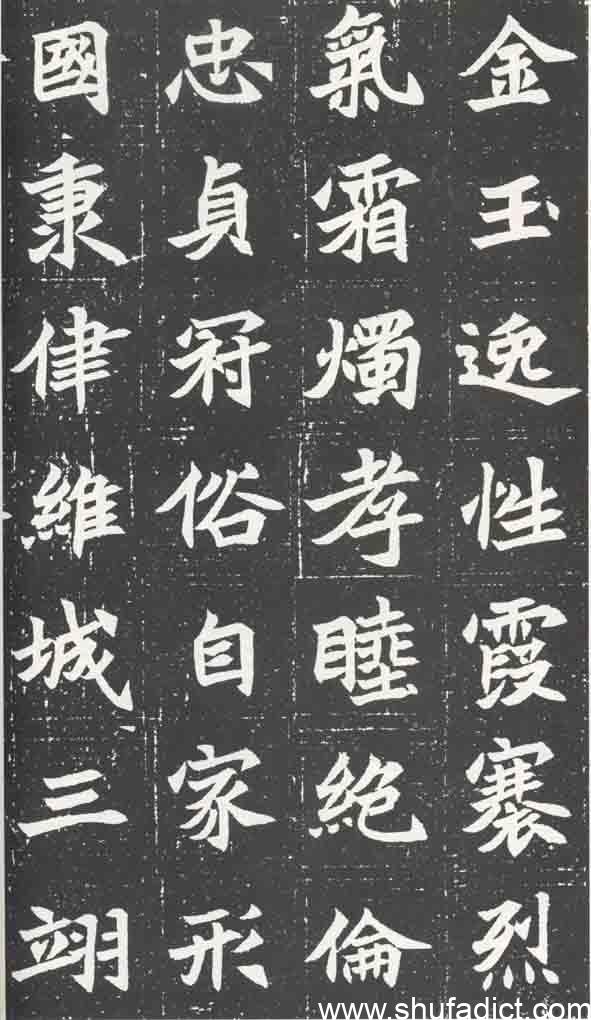 金玉逸性霞褰烈
氣霜燭孝睦絶倫
忠貞冠俗自家形
國秉律維城三翊
www.shufadict.com